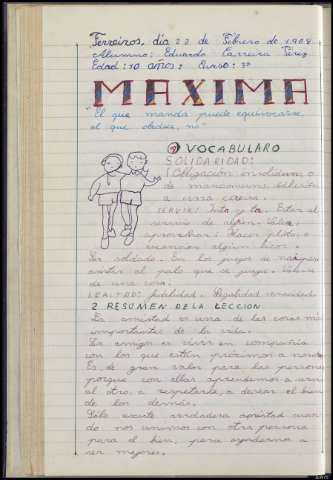 Ferreiros, día 22 de Febrero de 1968
Alumno: Eduardo Carreira Pérez
Edad: 10 años: Curso: 3º
MAXIMA
"El que manda puede equivocarse,
el que obedece, no"
1 VOCABULARO
SOLIDARIDAD:
Obligación insolidum, o
de mancomun, adhesión
a una causa.
SERVIR: Estar al
servicio de alguien. Valer,
aprovechar: Hacer plato o
escanciar algun licor.
Ser soldado. En los juegos de naipes
asistir al palo que se juega. Valerse
de una cosa.
LEALTAD: fidelidad. Legalidad
2. RESUMEN DE LA LECCION
La amistad es una de las cosas más
importantes de la vida.
Ser amigo es vivir en compañía
con los que están próximos a
Es de gran valor para las personas
porque con ellas aprendemos a
al otro, a respetarle, a desear el bien
de los demás.
Sólo existe verdadera amistad cuan-
do nos unimos con otra persona
para el bien, para ayudarnos a
ser mejores.